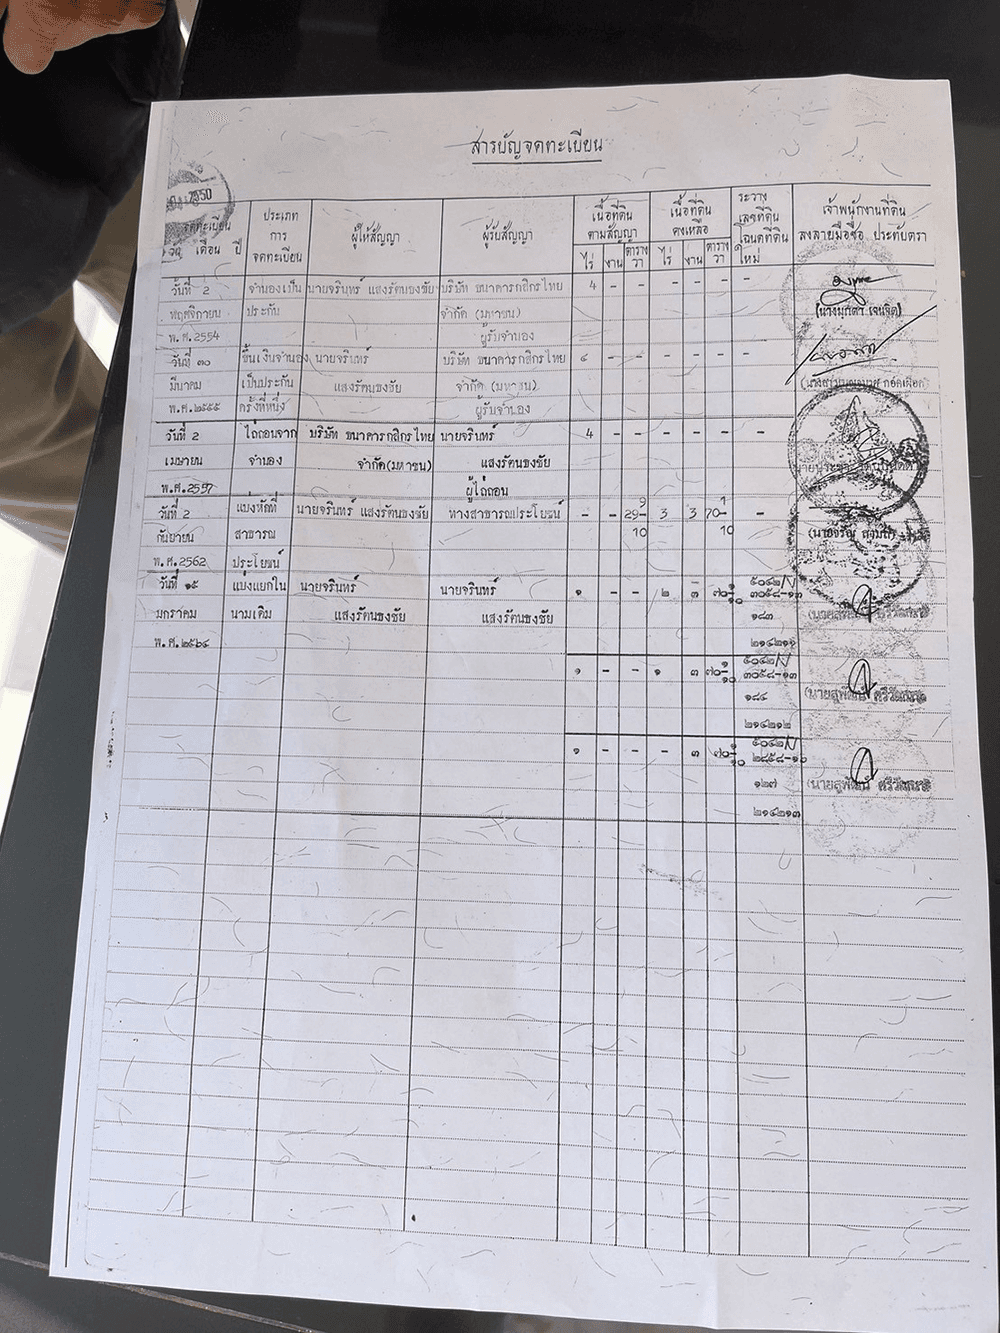 สารบัญจดทะเบียน
2550
จดทะเบียน
วัน เดือน ปี
ประเภท
การ
จดทะเบียน
ผู้ให้สัญญา
ผู้รับสัญญา
เนื้อที่ดิน
ตามสัญญา
ไร่ งาน ตาราง
วา
เนื้อที่ดิน
คงเหลือ
ไร่ งาน ตาราง
วา
ระวาง
เลขที่ดิน
โฉนดที่ดิน
ใหม่
เจ้าพนักงานที่ดิน
ลงลายมือชื่อ ประทับตรา
วันที่ 2 จำนองเป็น นายจรินทร์ แสงรัตนธงชัย บริษัท ธนาคารกสิกรไทย 4 - - - - - -
พฤศจิกายน ประกัน จำกัด (มหาชน) (นางมุกดา เจนจิต)
พ.ศ.2554 ผู้รับจำนอง
วันที่ ๓๐ ขึ้นเงินจำนอง นายจรินทร์ บริษัท ธนาคารกสิกรไทย ๔ - - - - - -
มีนาคม เป็นประกัน แสงรัตนธงชัย จำกัด (มหาชน)
พ.ศ.๒๕๕๕ ครั้งที่หนึ่ง ผู้รับจำนอง
วันที่ 2 ไถ่ถอนจาก บริษัท ธนาคารกสิกรไทย นายจรินทร์ 4 - - - - - -
เมษายน จำนอง จำกัด(มหาชน) แสงรัตนธงชัย
พ.ศ.2557 ผู้ไถ่ถอน
วันที่ 2 แบ่งหักที่ นายจรินทร์ แสงรัตนธงชัย ทางสาธารณประโยชน์ - - 29 9/10 3 3 70 1/10 -
กันยายน สาธารณ
พ.ศ.2562 ประโยชน์
วันที่ ๑๕ แบ่งแยกใน นายจรินทร์ นายจรินทร์ ๑ - - ๒ ๓ ๗๐ ๑/๑๐ ๕๐๔๒ IV
๓๐๕๘-๑๓
มกราคม นามเดิม แสงรัตนธงชัย แสงรัตนธงชัย ๑๘๓
พ.ศ.๒๕๖๔ ๒๑๔๒๑๑
๑ - - ๑ ๓ ๗๐ ๑/๑๐ ๕๐๔๒ IV
๓๐๕๘-๑๓
๑๘๔
๒๑๔๒๑๒
๑ - - - ๓ ๗๐ ๑/๑๐ ๕๐๔๒ IV
๒๘๕๘-๑๐
๑๒๗
๒๑๔๒๑๓